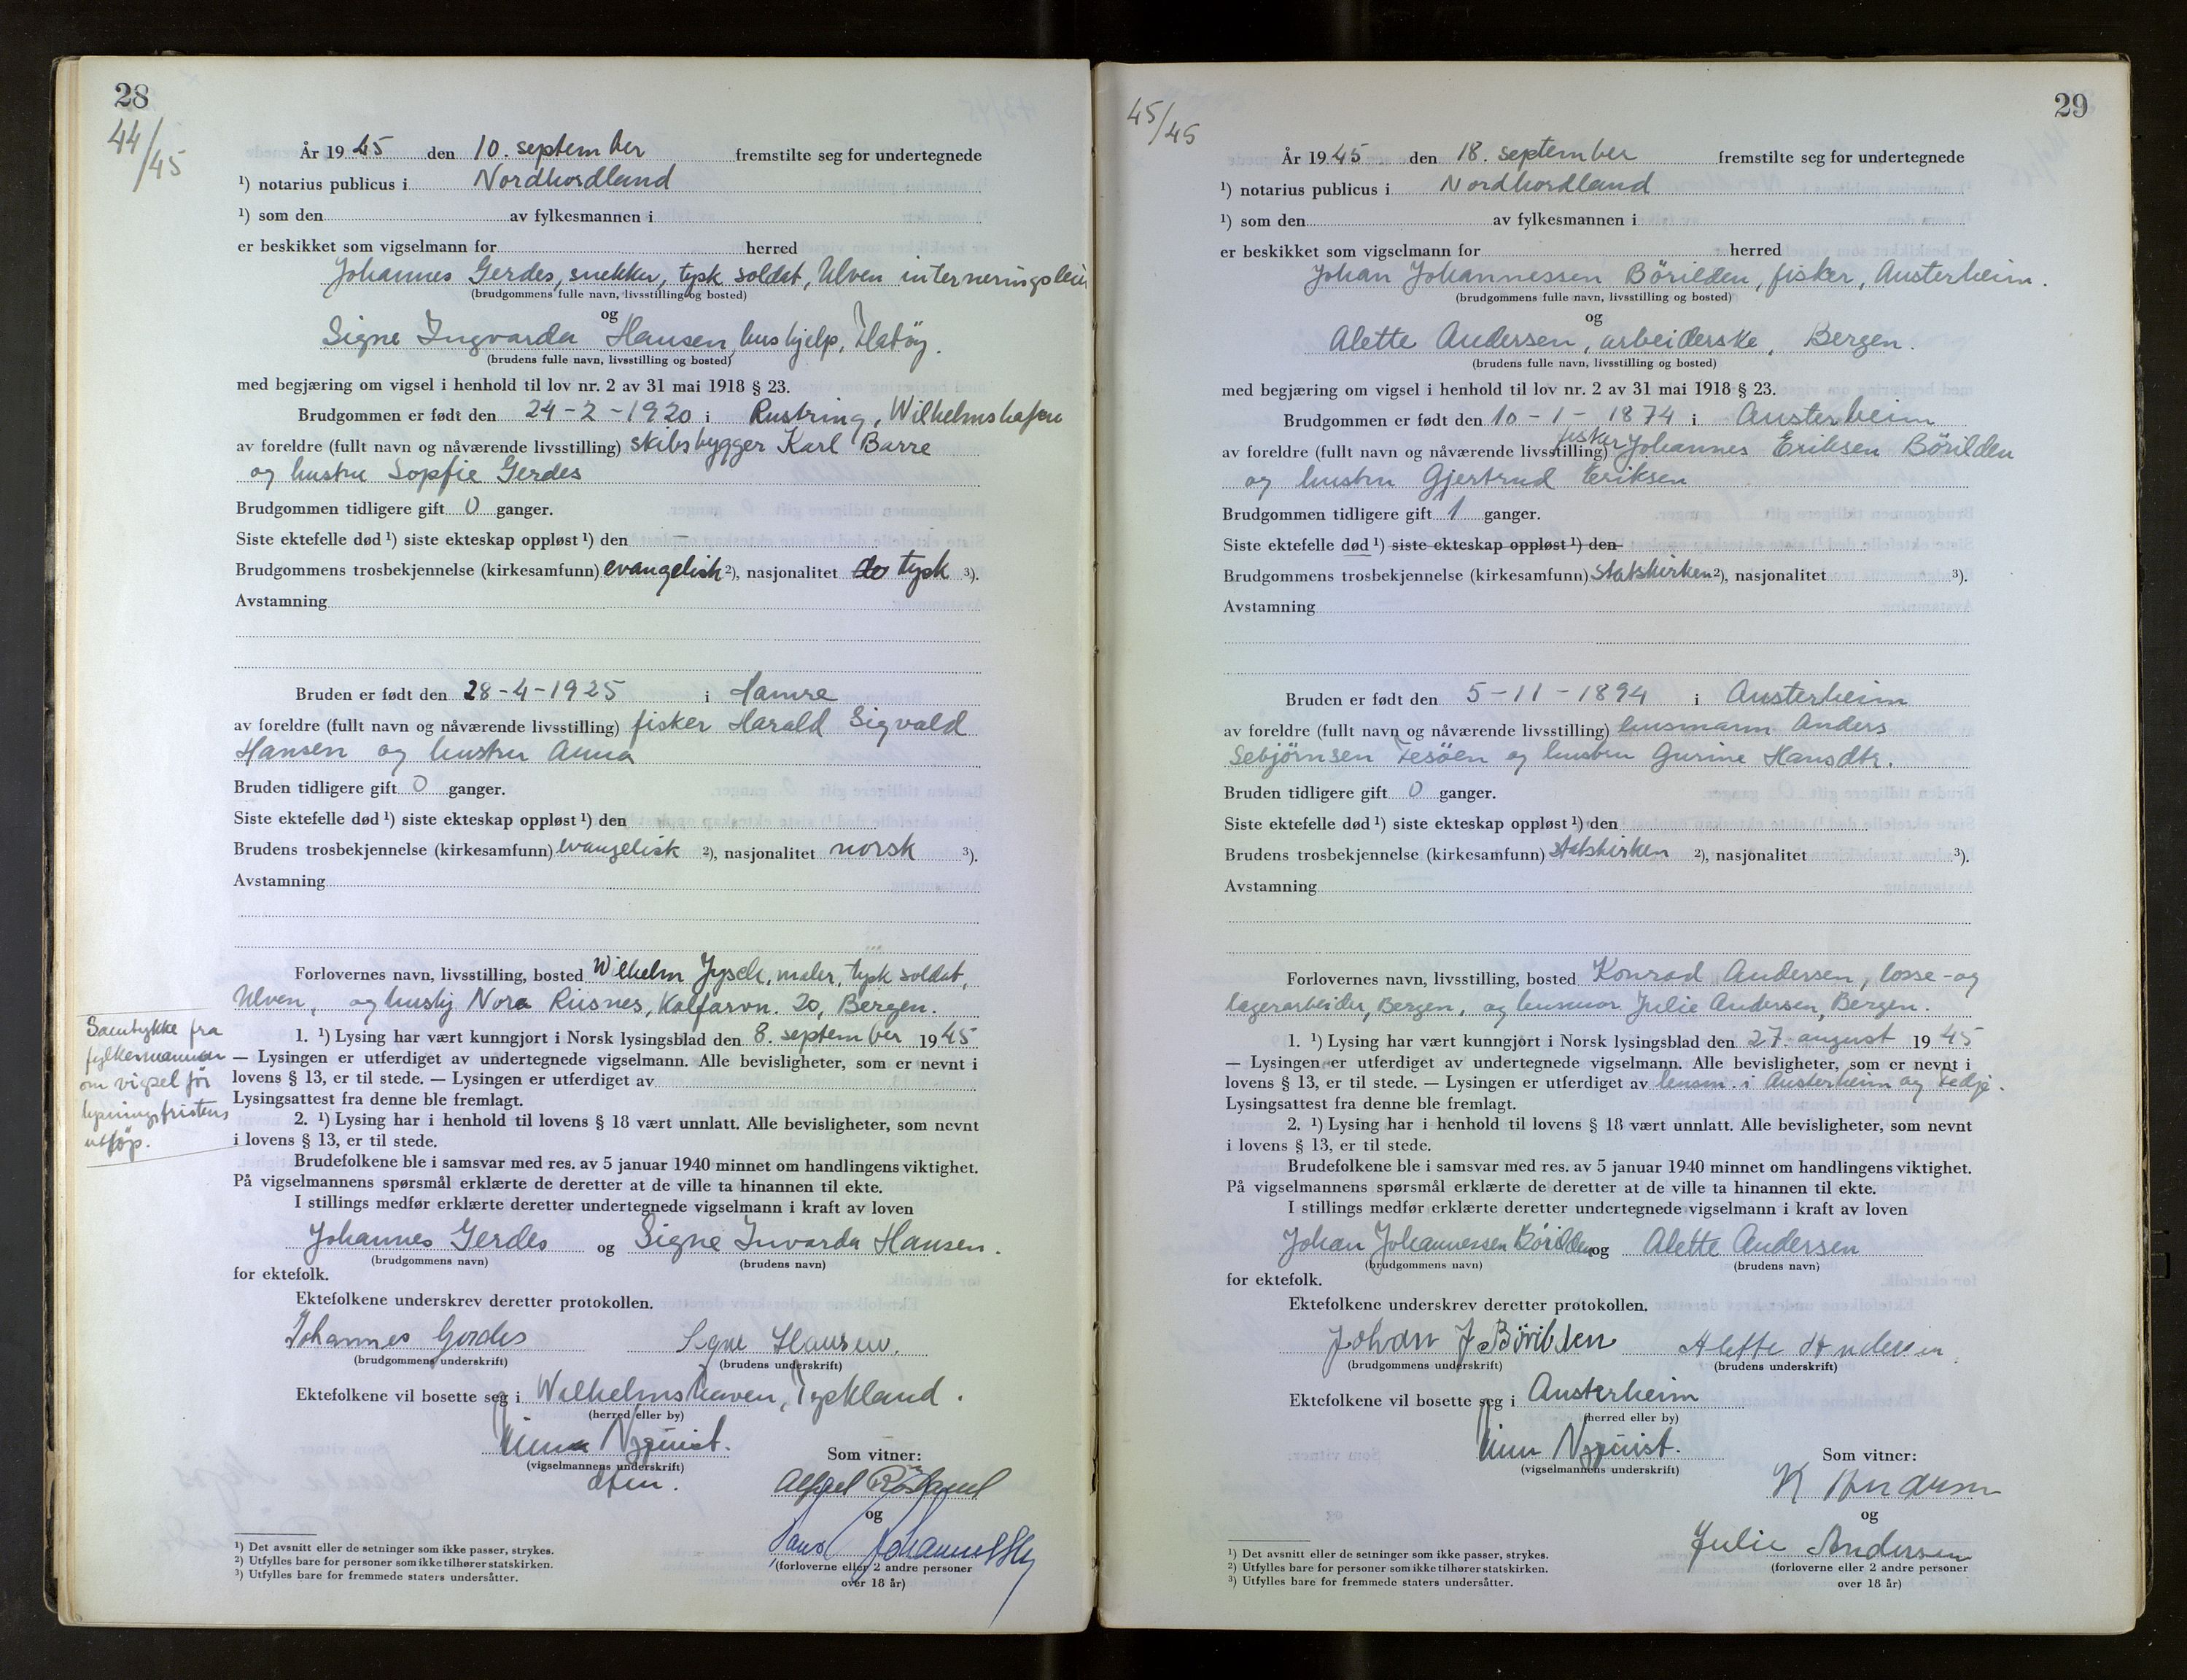 28
44/45
År 1945 den 10. september fremstilte seg for undertegnede
¹) notarius publicus i Nordhordland
¹) som den av fylkesmannen i
er beskikket som vigselmann for herred
Johannes Gerdes, snekker, tysk soldat, Ulven interneringsleir
(brudgommens fulle navn, livsstilling og bosted)
og
Signe Ingvarda Hansen, hushjelp, Flatöy.
(brudens fulle navn, livsstilling og bosted)
med begjæring om vigsel i henhold til lov nr. 2 av 31 mai 1918 § 23.
Brudgommen er født den 24-2-1920 i Rustring, Wilhelmshafen
av foreldre (fullt navn og nåværende livsstilling) skibsbygger Karl Barre
og hustru Sopfie Gerdes
Brudgommen tidligere gift 0 ganger.
Siste ektefelle død ¹) siste ekteskap oppløst ¹) den —
Brudgommens trosbekjennelse (kirkesamfunn) evangelisk ²), nasjonalitet do tysk ³).
Avstamning
Bruden er født den 28-4-1925 i Hamre
av foreldre (fullt navn og nåværende livsstilling) fisker Harald Sigvald
Hansen og hustru Anna
Bruden tidligere gift 0 ganger.
Siste ektefelle død ¹) siste ekteskap oppløst ¹) den
Brudens trosbekjennelse (kirkesamfunn) evangelisk ²), nasjonalitet norsk ³).
Avstamning
Forlovernes navn, livsstilling, bosted Wilhelm Jysch, maler, tysk soldat,
Ulven, og hushj Nora Riisnes, Kalfarvn. 20, Bergen.
1. ¹) Lysing har vært kunngjort i Norsk lysingsblad den 8. september 1945
— Lysingen er utferdiget av undertegnede vigselmann. Alle bevisligheter, som er nevnt i
lovens § 13, er til stede. — Lysingen er utferdiget av
Lysingsattest fra denne ble fremlagt.
Samtykke fra
fylkesmannen
om vigsel för
lysningsfristens
utlöp.
2. ¹) Lysing har i henhold til lovens § 18 vært unnlatt. Alle bevisligheter, som nevnt
i lovens § 13, er til stede.
Brudefolkene ble i samsvar med res. av 5 januar 1940 minnet om handlingens viktighet.
På vigselmannens spørsmål erklærte de deretter at de ville ta hinannen til ekte.
I stillings medfør erklærte deretter undertegnede vigselmann i kraft av loven
Johannes Gerdes og Signe Invarda Hansen.
(brudgommens navn) (brudens navn)
for ektefolk.
Ektefolkene underskrev deretter protokollen.
Johannes Gerdes Signe Hansen.
(brudgommens underskrift) (brudens underskrift)
Ektefolkene vil bosette seg i Wilhelmshaven, Tyskland.
(herred eller by)
Nyquist.
(vigselmannens underskrift)
Som vitner:
og
(forloverne eller 2 andre personer
over 18 år)
¹) Det avsnitt eller de setninger som ikke passer, strykes.
²) Utfylles bare for personer som ikke tilhører statskirken.
³) Utfylles bare for fremmede staters undersåtter.
29
45/45
År 1945 den 18. september fremstilte seg for undertegnede
¹) notarius publicus i Nordhordland
¹) som den av fylkesmannen i
er beskikket som vigselmann for herred
Johan Johannessen Börilden, fisker, Austerheim.
(brudgommens fulle navn, livsstilling og bosted)
og
Alette Andersen, arbeiderske, Bergen.
(brudens fulle navn, livsstilling og bosted)
med begjæring om vigsel i henhold til lov nr. 2 av 31 mai 1918 § 23.
Brudgommen er født den 10-1-1874 i Austerheim
av foreldre (fullt navn og nåværende livsstilling) fisker Johannes Eriksen Börilden
og hustru Gjertrud Eriksen
Brudgommen tidligere gift 1 ganger.
Siste ektefelle død ¹) siste ekteskap oppløst ¹) den
Brudgommens trosbekjennelse (kirkesamfunn) statskirken ²), nasjonalitet ³).
Avstamning
Bruden er født den 5-11-1894 i Austerheim
av foreldre (fullt navn og nåværende livsstilling) husmann Anders
Sebjörnsen Fesöen og hustru Gurine Hansdtr.
Bruden tidligere gift 0 ganger.
Siste ektefelle død ¹) siste ekteskap oppløst ¹) den
Brudens trosbekjennelse (kirkesamfunn) statskirken ²), nasjonalitet ³).
Avstamning
Forlovernes navn, livsstilling, bosted Konrad Andersen, losse- og
lagerarbeider, Bergen, og husmor Julie Andersen, Bergen.
1. ¹) Lysing har vært kunngjort i Norsk lysingsblad den 27. august 1945
— Lysingen er utferdiget av undertegnede vigselmann. Alle bevisligheter, som er nevnt i
lovens § 13, er til stede. — Lysingen er utferdiget av lensm. i Austerheim og Fedje.
Lysingsattest fra denne ble fremlagt.
2. ¹) Lysing har i henhold til lovens § 18 vært unnlatt. Alle bevisligheter, som nevnt
i lovens § 13, er til stede.
Brudefolkene ble i samsvar med res. av 5 januar 1940 minnet om handlingens viktighet.
På vigselmannens spørsmål erklærte de deretter at de ville ta hinannen til ekte.
I stillings medfør erklærte deretter undertegnede vigselmann i kraft av loven
Johan Johannessen Börilden og Alette Andersen
(brudgommens navn) (brudens navn)
for ektefolk.
Ektefolkene underskrev deretter protokollen.
Johan J Börilden Alette Andersen
(brudgommens underskrift) (brudens underskrift)
Ektefolkene vil bosette seg i Austerheim
(herred eller by)
Nyquist.
(vigselmannens underskrift)
Som vitner:
K Andersen
og
Julie Andersen
(forloverne eller 2 andre personer
over 18 år)
¹) Det avsnitt eller de setninger som ikke passer, strykes.
²) Utfylles bare for personer som ikke tilhører statskirken.
³) Utfylles bare for fremmede staters undersåtter.